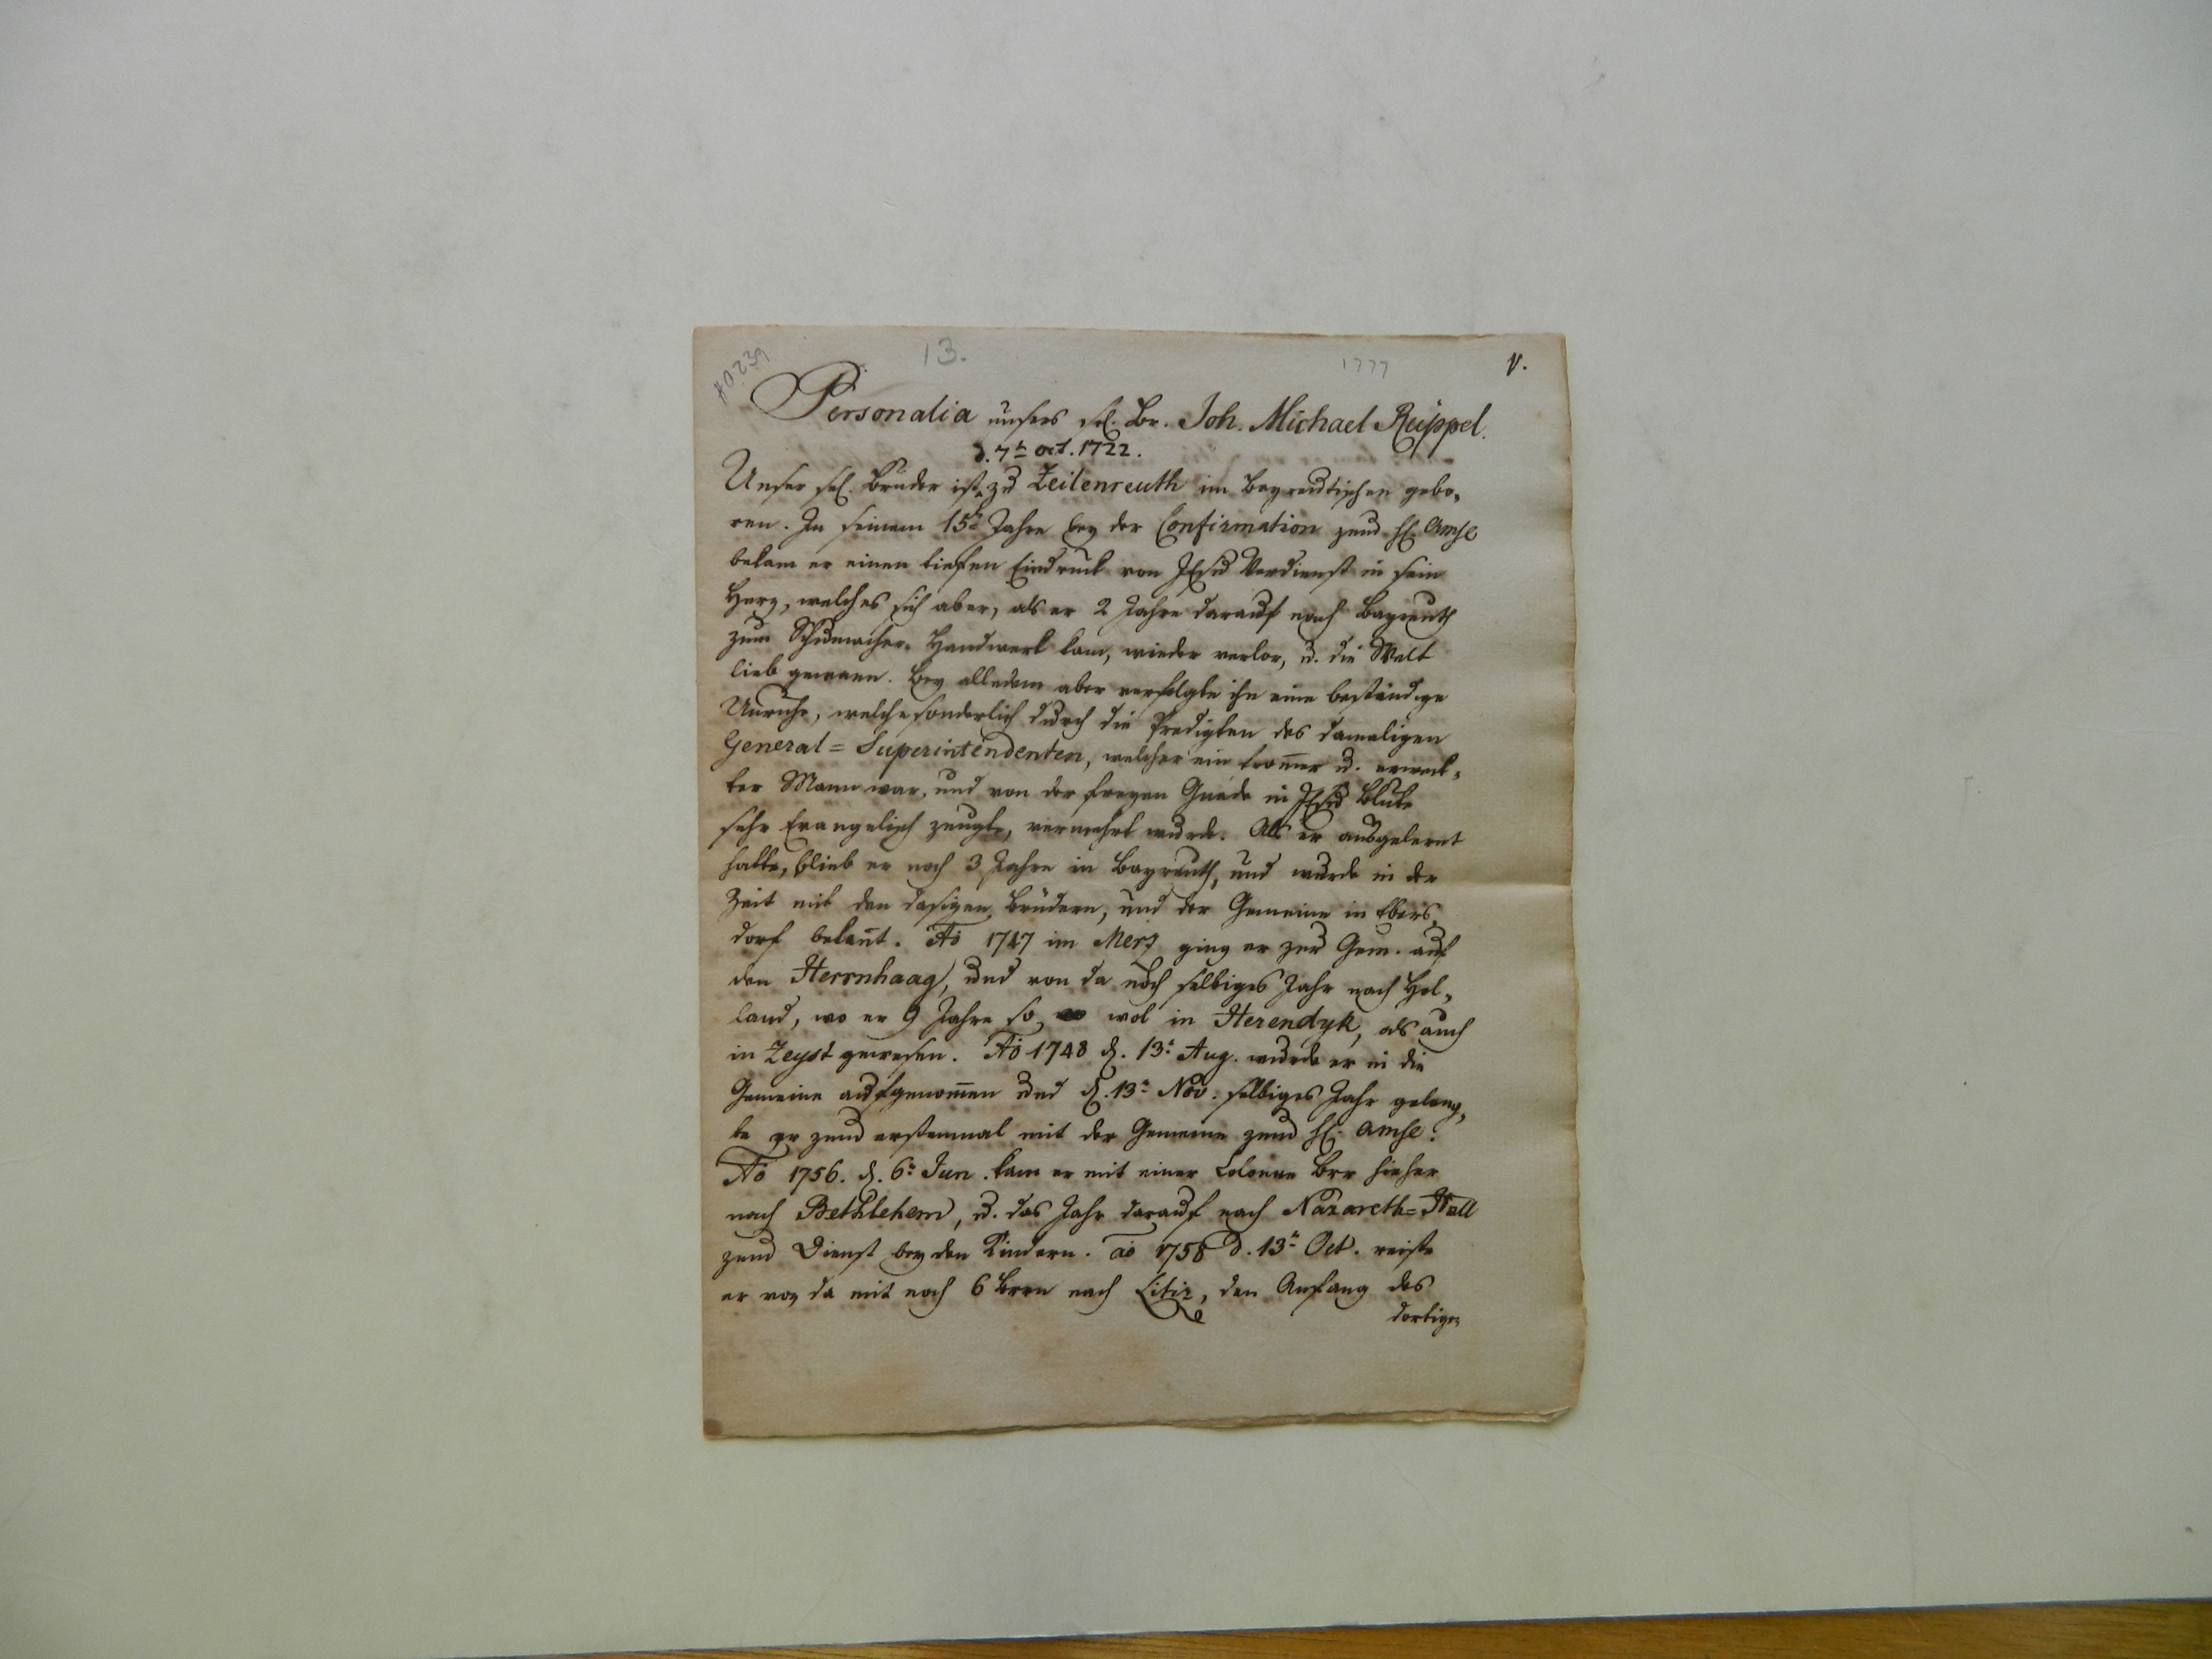 H0239
13.
1777
V.
Personalia unsers sel. Br. Joh. Michael Rüppel.
d. 7t oct. 1722.
Unser sel. Bruder ist zu Zeilenreuth im Bayreutischen gebo-
ren. In seinem 15t Jahre bey der Confirmation zum hl. Amhl
bekam er einen tiefen Eindruck von JEsu Verdienst in sein
Herz, welches sich aber, als er 2 Jahre darauf nach Bayreuth
zum Schumacher-Handwerk kam, wieder verlor, u. die Welt
lieb gewann. Bey alledem aber verfolgte ihn eine beständige
Unruhe, welche sonderlich durch die Predigten des damaligen
General=Superintendenten, welcher ein from̄er u. erweck-
ter Mann war, und von der freyen Gnade in JEsu Blute
sehr Evangelisch zeugte, vermehrt wurde. Als er ausgelernt
hatte, blieb er noch 3 Jahre in Bayreuth, und wurde in der
Zeit mit den dasigen Brüdern, und der Gemeine in Ebers-
dorf bekan̄t. Ao 1747 im Merz ging er zur Gem. auf
den Herrnhaag, und von da noch selbiges Jahr nach Hol-
land, wo er 9 Jahre so wol in Herendyk, als auch
in Zeyst gewesen. Ao 1748 d. 13t Aug. wurde er in die
Gemeine aufgenom̄en und d. 13t Nov. selbiges Jahr gelang-
te er zum erstenmal mit der Gemeine zum hl. Amhl.
Ao 1756. d. 6t Jun. kam er mit einer Colonne Brr hieher
nach Bethlehem, u. das Jahr darauf nach Nazareth=Hall
zum Dienst bey den Kindern. Ao 1758 d. 13t Oct. reiste
er von da mit noch 6 Brrn nach Litiz, den Anfang des
dortigen